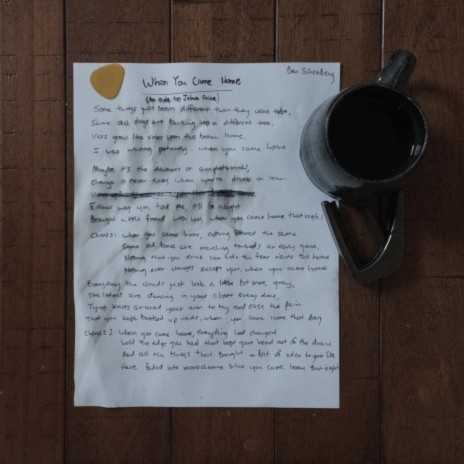 Ben Schenberg
When You Came Home
(An ode to John Prine)
Some things just seem different than they used to be,
Same old dogs are barking up a different tree,
Vices grow like vines upon this broken home,
I was waiting patiently.. when you came home
Maybe it's the or
Change is never easy when you're drunk in
Either way you told me, it'll be alright
Brought a little friend with you, when you came home that night
Chorus: When you came home, nothing the same
Same old are marching towards an early grave,
Nothing that you drink can hide the fear inside this home
Nothing ever changes except you, when you came home
Everyday the clouds just look a little bit more grey,
are dancing in your closet every day,
Tying knots around your arm to try and ease the pain
That you kept bottled up inside, when you came home that day
Chorus 2: When you came home, everything had changed
Lost the edge you had that kept your head out of the
And all the things that brought a bit of color to your life
Have faded into monochrome since you came home that night